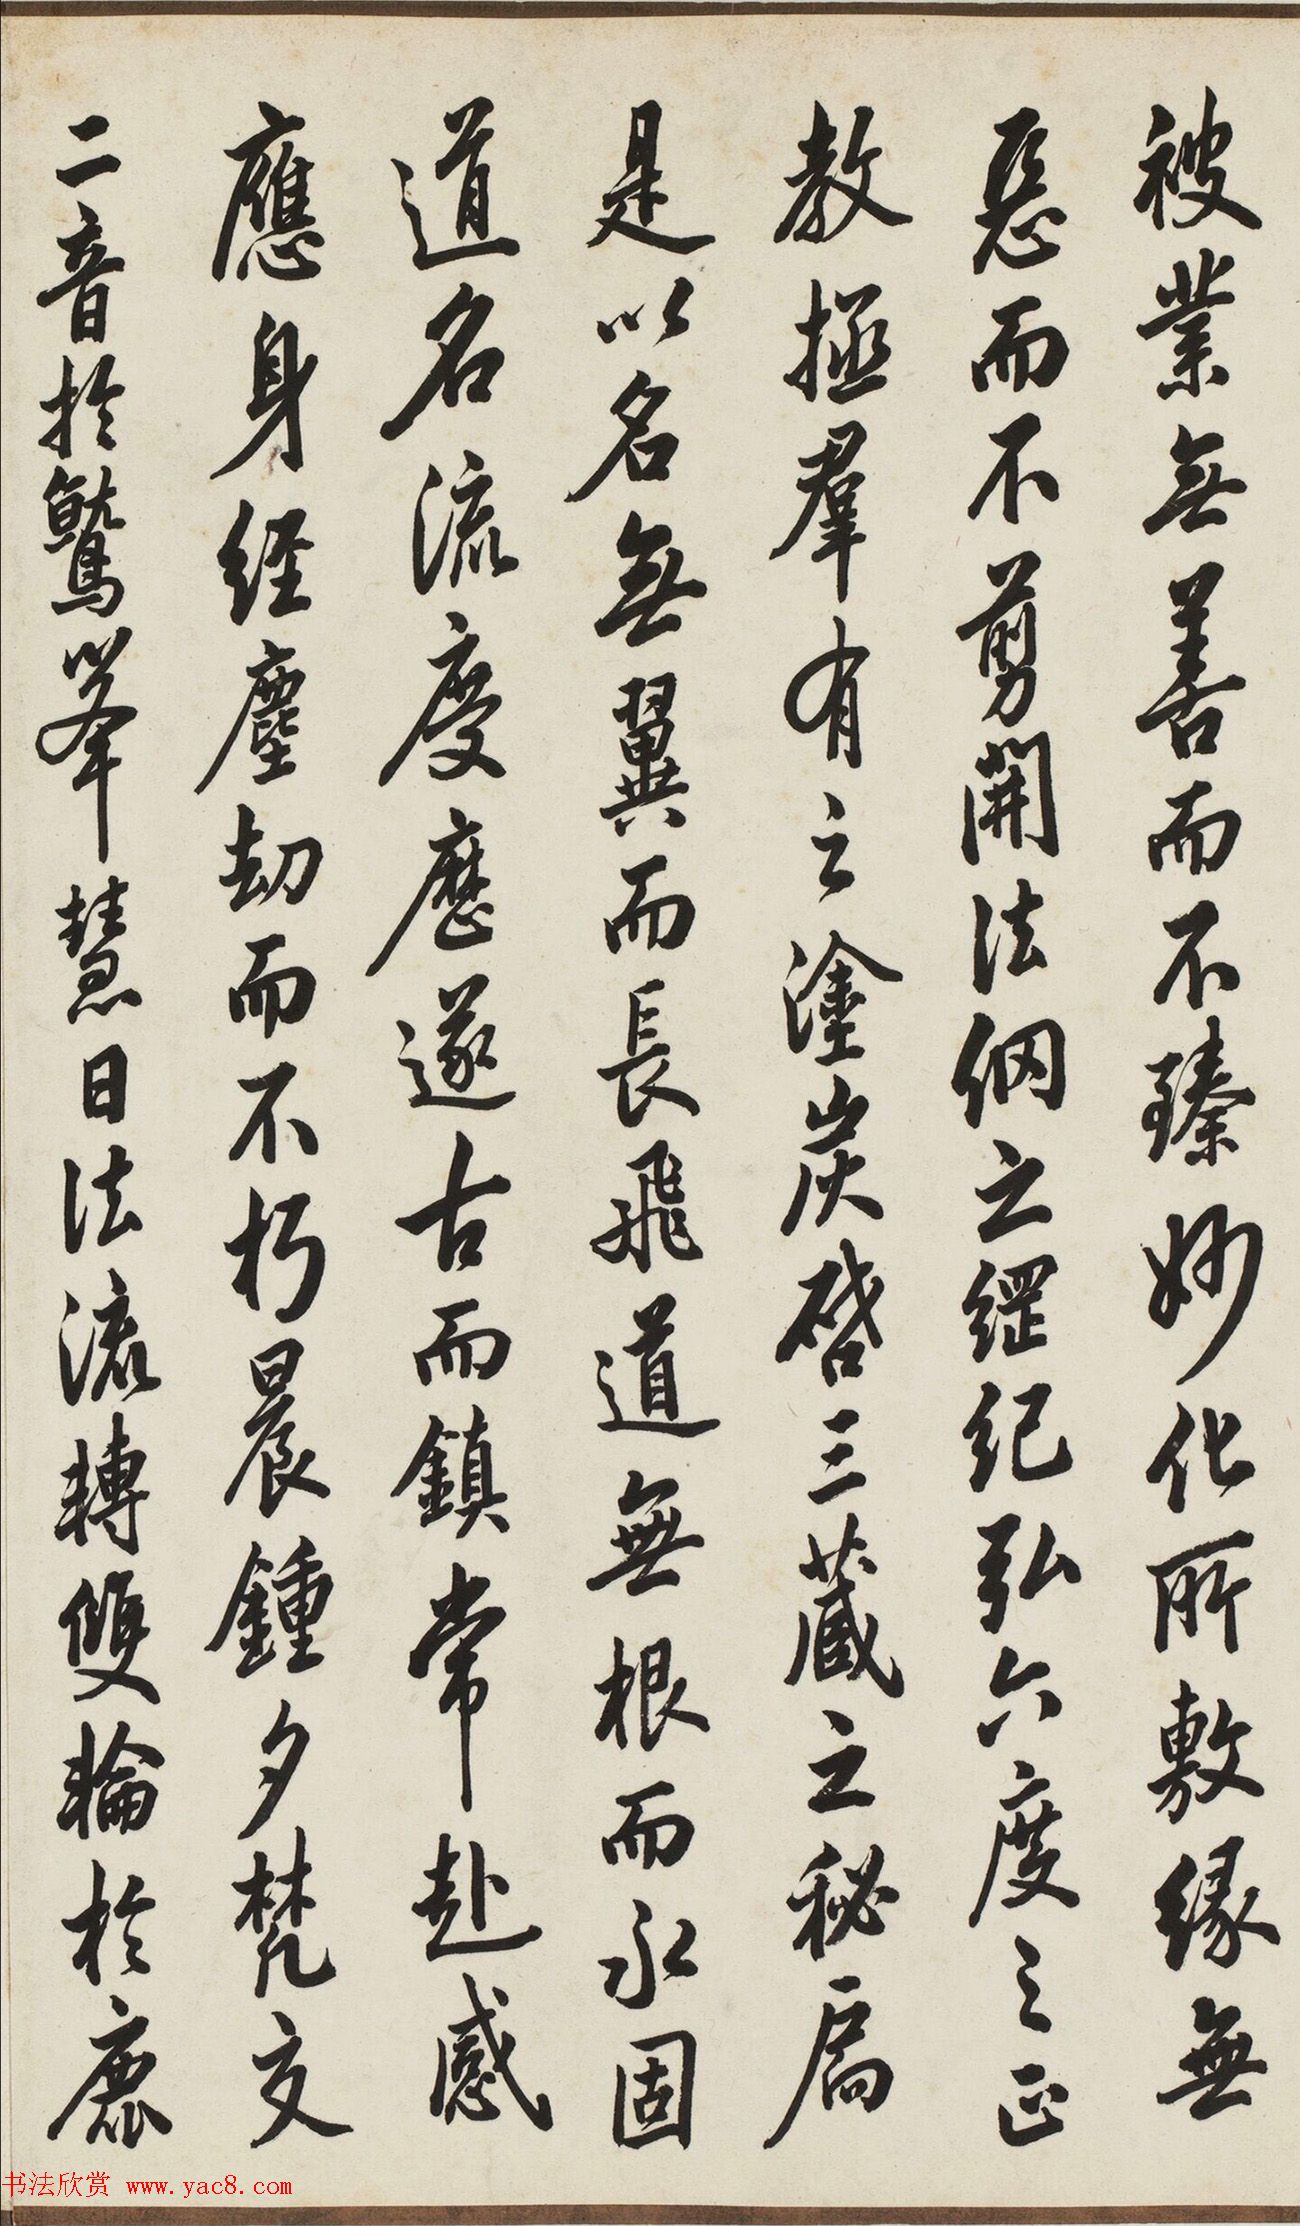 被業無善而不臻妙化所敷緣無
惡而不剪開法網之綱紀弘六度之正
教拯羣有之塗炭啓三藏之秘扃
是以名無翼而長飛道無根而永固
道名流慶歷遂古而鎮常赴感
應身經塵劫而不朽晨鍾夕梵交
二音於鷲峯慧日法流轉雙輪於鹿
书法欣赏 www.yac8.com